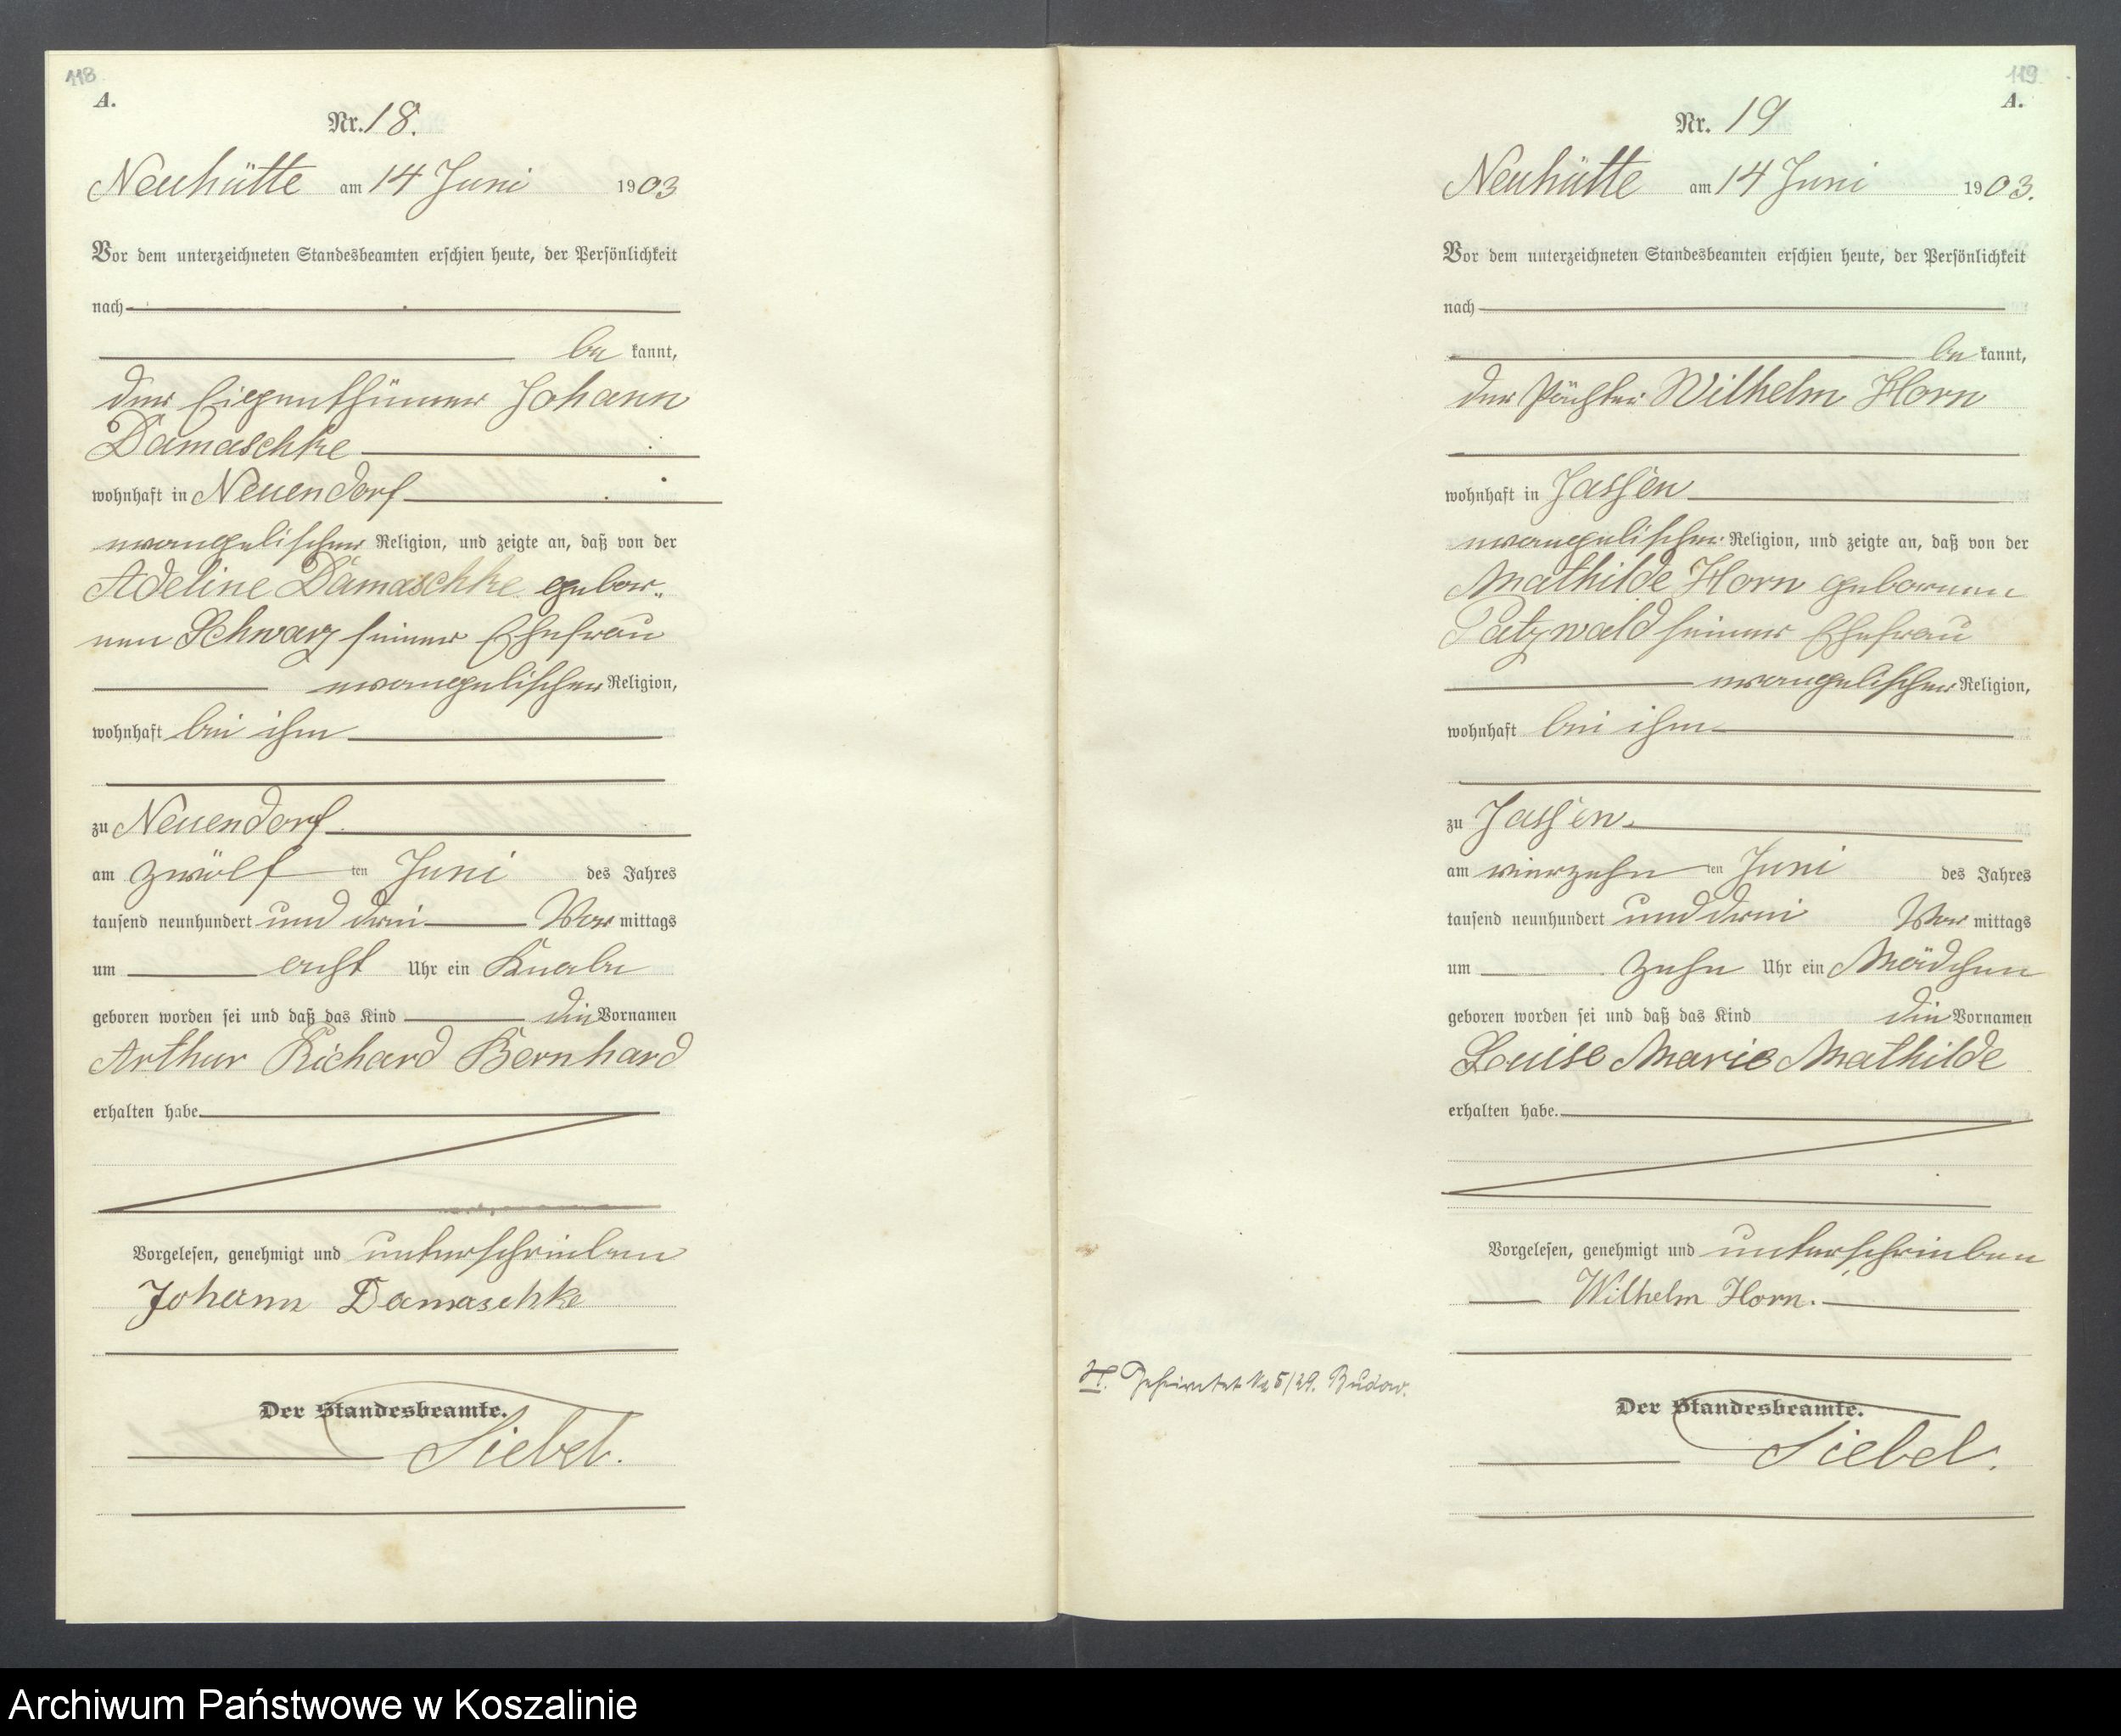 118
A.
Nr. 18.
Neuhütte am 14 Juni 1903
Vor dem unterzeichneten Standesbeamten erschien heute, der Persönlichkeit
nach
be kannt,
der Eigenthümer Johann
Damaschke
wohnhaft in Neuendorf
evangelischer Religion, und zeigte an, daß von der
Adeline Damaschke gebor-
nen Schwarz seiner Ehefrau
evangelischer Religion,
wohnhaft bei ihm
zu Neuendorf
am zwölf ten Juni des Jahres
tausend neunhundert und drei Vor mittags
um acht Uhr ein Knabe
geboren worden sei und daß das Kind die Vornamen
Arthur Richard Bernhard
erhalten habe.
Vorgelesen, genehmigt und unterschrieben
Johann Damaschke
Der Standesbeamte.
Siebel.
119
A.
Nr. 19
Neuhütte am 14 Juni 1903.
Vor dem unterzeichneten Standesbeamten erschien heute, der Persönlichkeit
nach
be kannt,
der Pächter Wilhelm Horn
wohnhaft in Jassen
evangelischer Religion, und zeigte an, daß von der
Mathilde Horn geborenen
Patzwald seiner Ehefrau
evangelischer Religion,
wohnhaft bei ihm
zu Jassen.
am vierzehn ten Juni des Jahres
tausend neunhundert und drei Vor mittags
um zehn Uhr ein Mädchen
geboren worden sei und daß das Kind die Vornamen
Louise Marie Mathilde
erhalten habe.
Vorgelesen, genehmigt und unterschrieben
Wilhelm Horn.
H. Geheiratet No 5/29. Budow.
Der Standesbeamte.
Siebel.
Archiwum Państwowe w Koszalinie